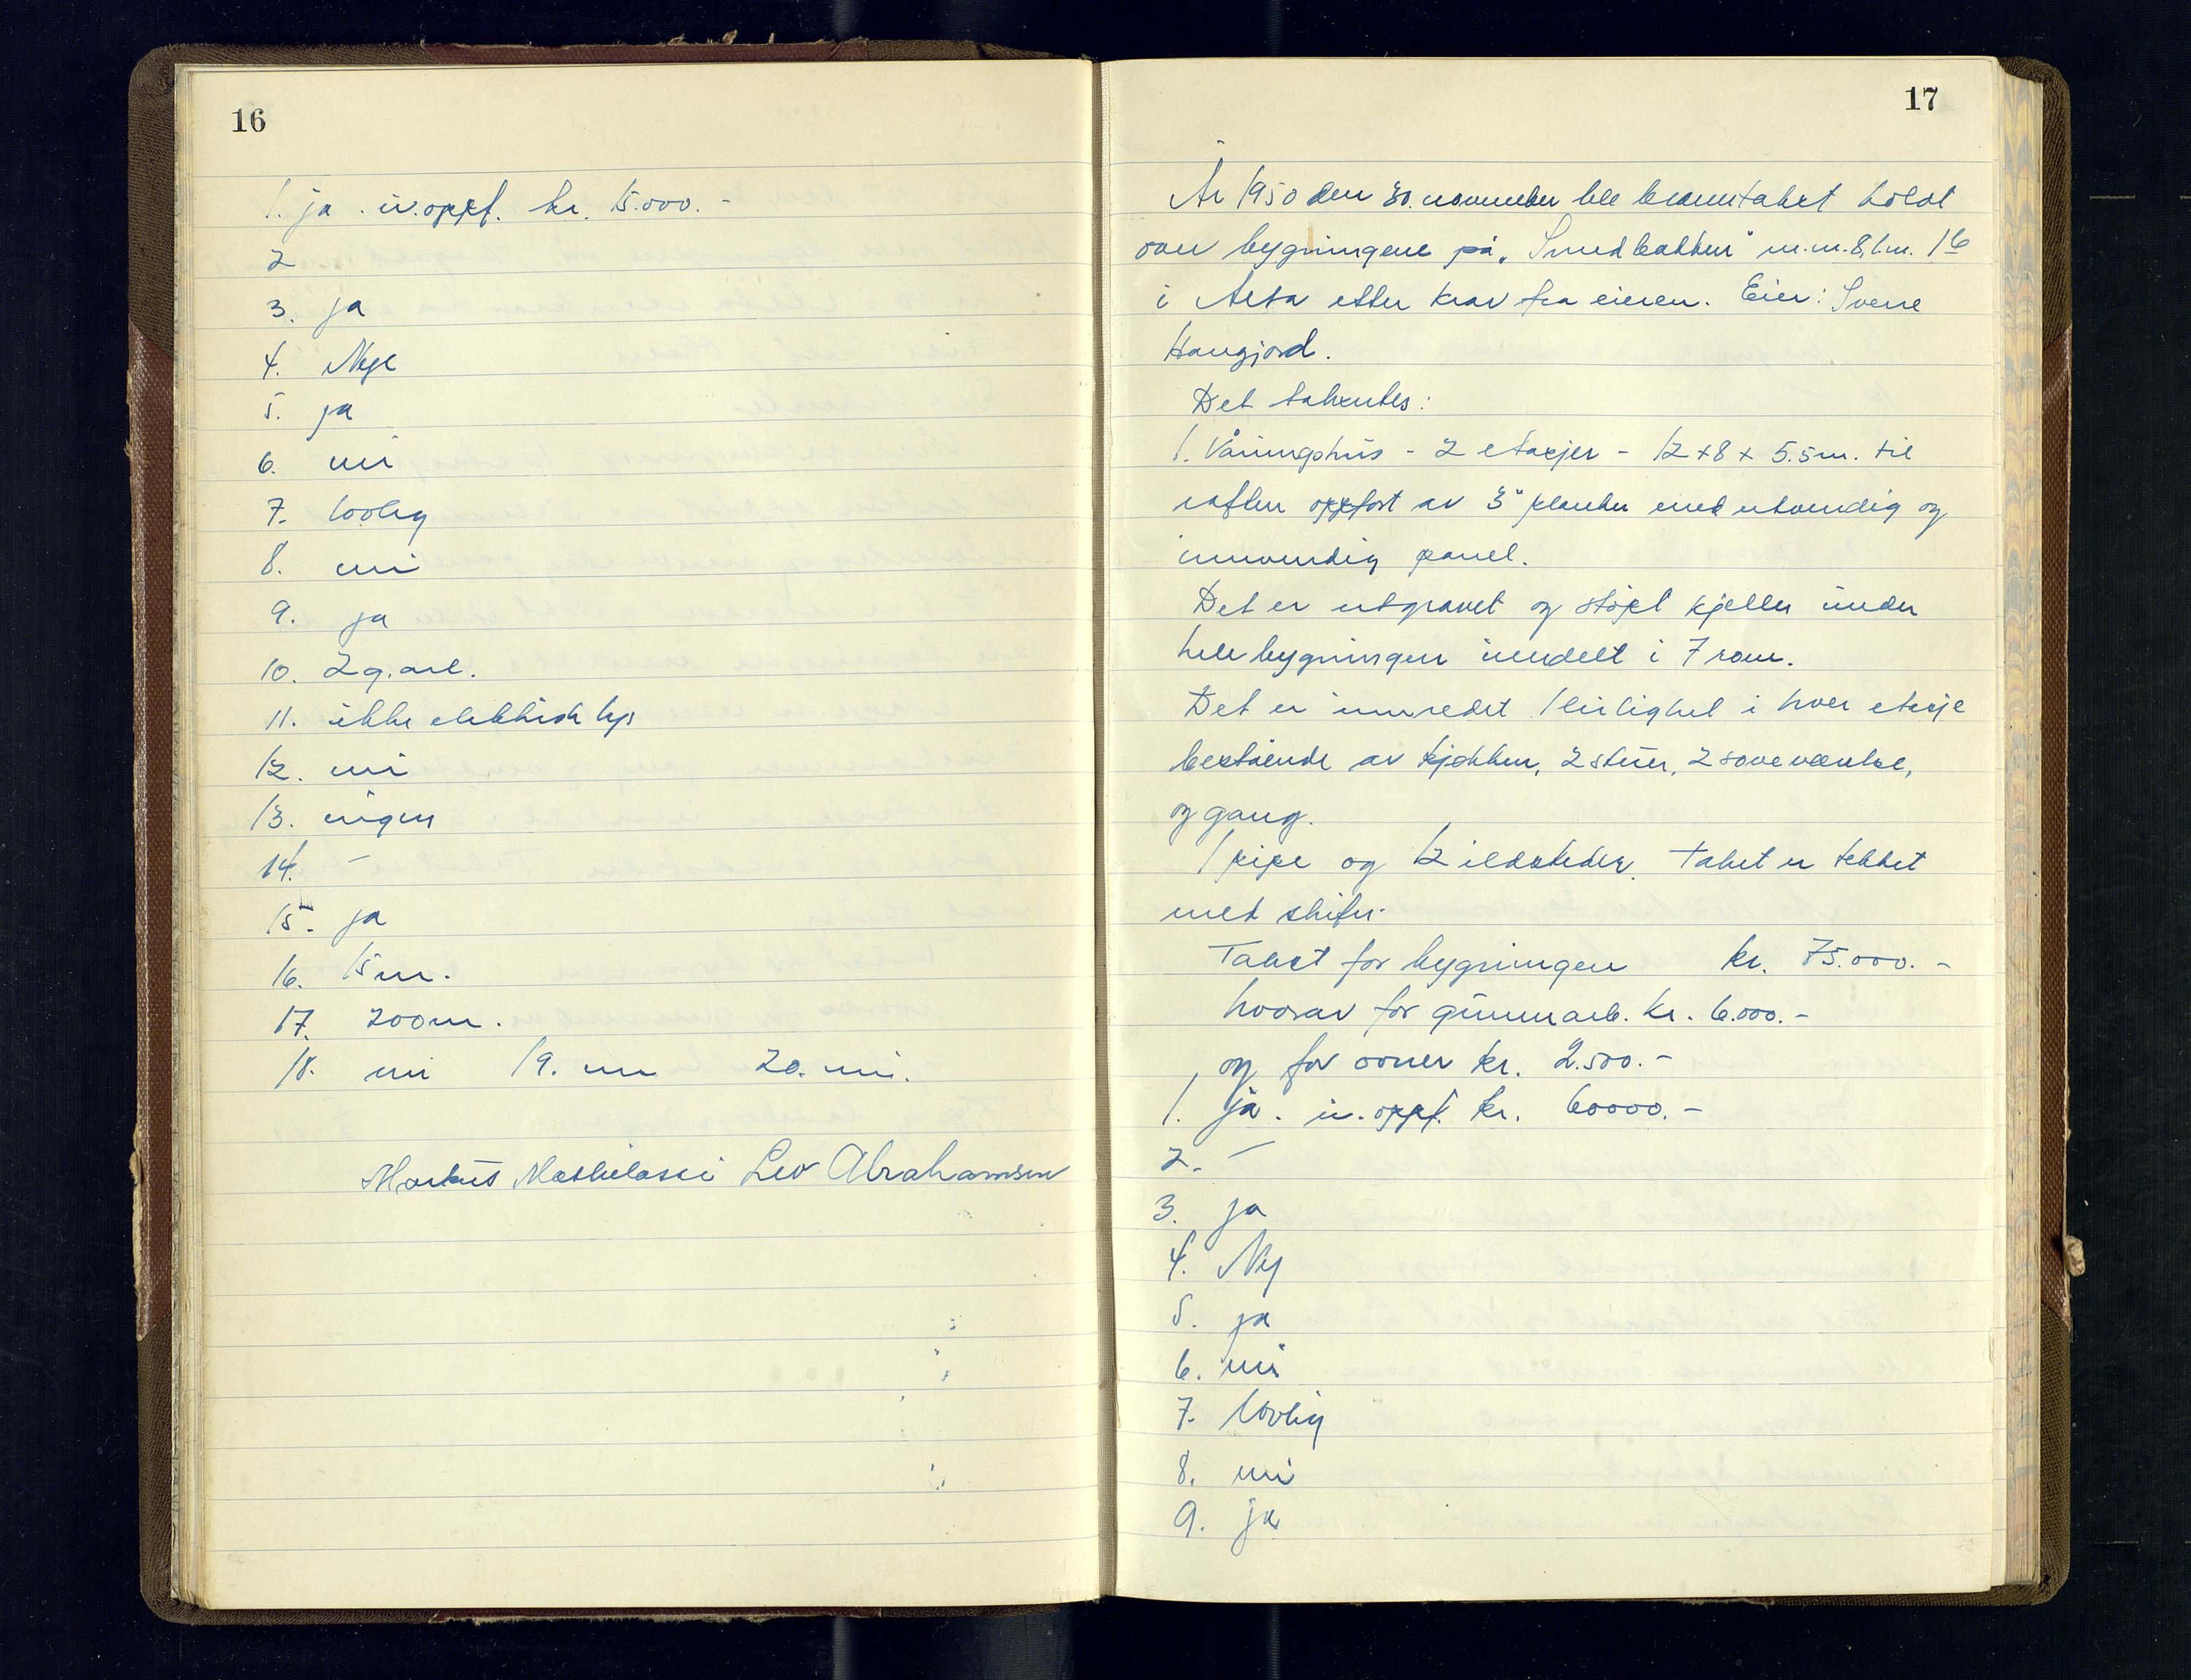 16
1. ja . u.oppf. kr. 15.000. -
2
3. ja
4. Nye
5. ja
6. nei
7. lovlig
8. nei
9. ja
10. 2 g. arl.
11. ikke elektrisk lys
12. nei
13. ingen
14. -
15. ja
16. 15 m.
17. 200 m.
18. nei 19. nei 20. nei.
Markus Leo Abrahamsen
17
År 1950 den 30. november ble branntakst holdt
over bygningene på "Smedbakken" m.m. 8, l.m. 16
i Alta etter krav fra eieren. Eier: Sverre
Haugjord.
Det takseredes:
1. Våningshus - 2 etasjer - 12 x 8 x 5.5 m. til
raften oppført av 3" planker med utvendig og
innvendig panel.
Det er utgravet og støpt kjeller under
hele bygningen inndelt i 7 rom.
Det er innredet 1 leilighet i hver etasje
bestående av kjøkken, 2 stuer, 2 soveværelse,
og gang.
1 pipe og 12 ildsteder. Taket er tekket
med skifer.
Takst for bygningen kr. 75.000. -
hvorav for grunnarb. kr. 6.000. -
og for ovner kr. 2.500. -
1. ja. u. oppf. kr. 60000. -
2. -
3. ja
4. Ny
5. ja
6. nei
7. lovlig
8. nei
9. ja